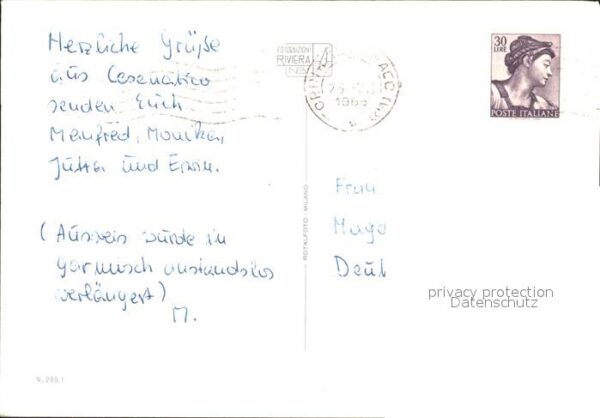 Herzliche Grüße
aus Cesenatico
senden Euch
Manfred, Monika,
Jutta und Erwin.
(Ausweis wurde in
Garmisch anstandslos
verlängert)
M.
RIVIERA
1965
30
LIRE
POSTE ITALIANE
ROTALFOTO - MILANO
Frau
Magd
Deut
privacy protection
Datenschutz